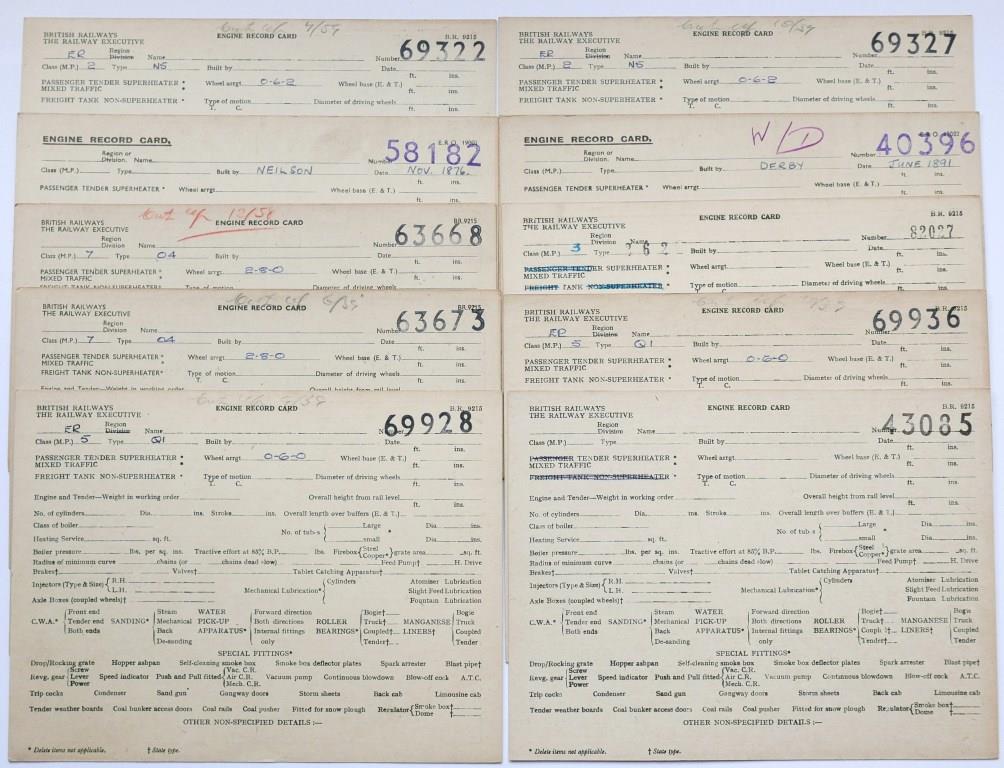 Cut up 7/59
BRITISH RAILWAYS ENGINE RECORD CARD B.R. 9215
THE RAILWAY EXECUTIVE
69322
ER Region Division Name Number
Class (M.P.) 2 Type N5 Built by Date
ft. ins.
PASSENGER TENDER SUPERHEATER * Wheel arrgt 0-6-2 Wheel base (E. & T.)
MIXED TRAFFIC * ft. ins.
FREIGHT TANK NON-SUPERHEATER * Type of motion Diameter of driving wheels
T. C. ft. ins.
ENGINE RECORD CARD. E.R.O.
58182
Region or Division. Name Number
Class (M.P.) Type Built by NEILSON Date NOV. 1876.
ft. ins.
PASSENGER TENDER SUPERHEATER * Wheel arrgt. Wheel base (E. & T.)
Cut up 12/58
BRITISH RAILWAYS ENGINE RECORD CARD B.R. 9215
THE RAILWAY EXECUTIVE
63668
Region Division Name Number
Class (M.P.) 7 Type O4 Built by Date
ft. ins.
PASSENGER TENDER SUPERHEATER * Wheel arrgt 2-8-0 Wheel base (E. & T.)
MIXED TRAFFIC * ft. ins.
FREIGHT TANK NON-SUPERHEATER * Type of motion Diameter of driving wheels
Cut up /59
BRITISH RAILWAYS ENGINE RECORD CARD B.R. 9215
THE RAILWAY EXECUTIVE
63673
Region Division Name Number
Class (M.P.) 7 Type O4 Built by Date
ft. ins.
PASSENGER TENDER SUPERHEATER * Wheel arrgt 2-8-0 Wheel base (E. & T.)
MIXED TRAFFIC * ft. ins.
FREIGHT TANK NON-SUPERHEATER * Type of motion Diameter of driving wheels
T. C. ft. ins.
Engine and Tender—Weight in working order Overall height from rail level
Cut up /59
BRITISH RAILWAYS ENGINE RECORD CARD B.R. 9215
THE RAILWAY EXECUTIVE
69928
ER Region Division Name Number
Class (M.P.) 5 Type Q1 Built by Date
ft. ins.
PASSENGER TENDER SUPERHEATER * Wheel arrgt 0-6-0 Wheel base (E. & T.)
MIXED TRAFFIC * ft. ins.
FREIGHT TANK NON-SUPERHEATER * Type of motion Diameter of driving wheels
T. C. ft. ins.
Engine and Tender—Weight in working order Overall height from rail level
No. of cylinders Dia. ins. Stroke ins. Overall length over buffers (E. & T.)
Class of boiler Large Dia. ins.
No. of tubes *
Heating Service sq. ft. small Dia. ins.
Boiler pressure lbs. per sq. ins. Tractive effort at 85% B.P. lbs. Firebox Steel Copper * grate area sq. ft.
Radius of minimum curve chains (or chains dead slow) Feed Pump† H. Drive
Brakes† Valves† Tablet Catching Apparatus†
Injectors (Type & Size) R.H. L.H. Mechanical Lubrication* Cylinders Atomiser Lubrication
Slight Feed Lubrication
Axle Boxes (coupled wheels)† Fountain Lubrication
Front end Steam WATER Forward direction Bogie† Bogie
C.W.A.* Tender end SANDING* Mechanical PICK-UP Both directions ROLLER Truck† MANGANESE Truck
Both ends Back APPARATUS* Internal fittings BEARINGS* Coupled† LINERS† Coupled
De-sanding only Tender† Tender
SPECIAL FITTINGS*
Drop/Rocking grate Hopper ashpan Self-cleaning smoke box Smoke box deflector plates Spark arrester Blast pipe†
Revg. gear Screw Lever Power Speed indicator Push and Pull fitted Vac. C.R. Air C.R. Mech. C.R. Vacuum pump Continuous blowdown Blow-off cock A.T.C.
Trip cocks Condenser Sand gun Gangway doors Storm sheets Back cab Limousine cab
Tender weather boards Coal bunker access doors Coal rails Coal pusher Fitted for snow plough Regulator Smoke box† Dome†
OTHER NON-SPECIFIED DETAILS :—
* Delete items not applicable. † State type.
Cut up 10/59
BRITISH RAILWAYS ENGINE RECORD CARD B.R. 9215
THE RAILWAY EXECUTIVE
69327
ER Region Division Name Number
Class (M.P.) 2 Type N5 Built by Date
ft. ins.
PASSENGER TENDER SUPERHEATER * Wheel arrgt 0-6-2 Wheel base (E. & T.)
MIXED TRAFFIC * ft. ins.
FREIGHT TANK NON-SUPERHEATER * Type of motion Diameter of driving wheels
T. C. ft. ins.
W/D
ENGINE RECORD CARD. E.R.O.
40396
Region or Division. Name Number
Class (M.P.) Type Built by DERBY Date JUNE 1891
ft. ins.
PASSENGER TENDER SUPERHEATER * Wheel arrgt. Wheel base (E. & T.)
BRITISH RAILWAYS ENGINE RECORD CARD B.R. 9215
THE RAILWAY EXECUTIVE
Region Division Name Number 82027
Class (M.P.) 3 Type 262 Built by Date
ft. ins.
PASSENGER TENDER SUPERHEATER * Wheel arrgt Wheel base (E. & T.)
MIXED TRAFFIC * ft. ins.
FREIGHT TANK NON-SUPERHEATER * Type of motion Diameter of driving wheels
Cut up /59
BRITISH RAILWAYS ENGINE RECORD CARD B.R. 9215
THE RAILWAY EXECUTIVE
69936
ER Region Division Name Number
Class (M.P.) 5 Type Q1 Built by Date
ft. ins.
PASSENGER TENDER SUPERHEATER * Wheel arrgt 0-6-0 Wheel base (E. & T.)
MIXED TRAFFIC * ft. ins.
FREIGHT TANK NON-SUPERHEATER * Type of motion Diameter of driving wheels
T. C. ft. ins.
BRITISH RAILWAYS ENGINE RECORD CARD B.R. 9215
THE RAILWAY EXECUTIVE
43085
Region Division Name Number
Class (M.P.) Type Built by Date
ft. ins.
PASSENGER TENDER SUPERHEATER * Wheel arrgt Wheel base (E. & T.)
MIXED TRAFFIC * ft. ins.
FREIGHT TANK NON-SUPERHEATER * Type of motion Diameter of driving wheels
T. C. ft. ins.
Engine and Tender—Weight in working order Overall height from rail level
No. of cylinders Dia. ins. Stroke ins. Overall length over buffers (E. & T.)
Class of boiler Large Dia. ins.
No. of tubes *
Heating Service sq. ft. small Dia. ins.
Boiler pressure lbs. per sq. ins. Tractive effort at 85% B.P. lbs. Firebox Steel Copper * grate area sq. ft.
Radius of minimum curve chains (or chains dead slow) Feed Pump† H. Drive
Brakes† Valves† Tablet Catching Apparatus†
Injectors (Type & Size) R.H. L.H. Mechanical Lubrication* Cylinders Atomiser Lubrication
Slight Feed Lubrication
Axle Boxes (coupled wheels)† Fountain Lubrication
Front end Steam WATER Forward direction Bogie† Bogie
C.W.A.* Tender end SANDING* Mechanical PICK-UP Both directions ROLLER Truck† MANGANESE Truck
Both ends Back APPARATUS* Internal fittings BEARINGS* Coupled† LINERS† Coupled
De-sanding only Tender† Tender
SPECIAL FITTINGS*
Drop/Rocking grate Hopper ashpan Self-cleaning smoke box Smoke box deflector plates Spark arrester Blast pipe†
Revg. gear Screw Lever Power Speed indicator Push and Pull fitted Vac. C.R. Air C.R. Mech. C.R. Vacuum pump Continuous blowdown Blow-off cock A.T.C.
Trip cocks Condenser Sand gun Gangway doors Storm sheets Back cab Limousine cab
Tender weather boards Coal bunker access doors Coal rails Coal pusher Fitted for snow plough Regulator Smoke box† Dome†
OTHER NON-SPECIFIED DETAILS :—
* Delete items not applicable. † State type.